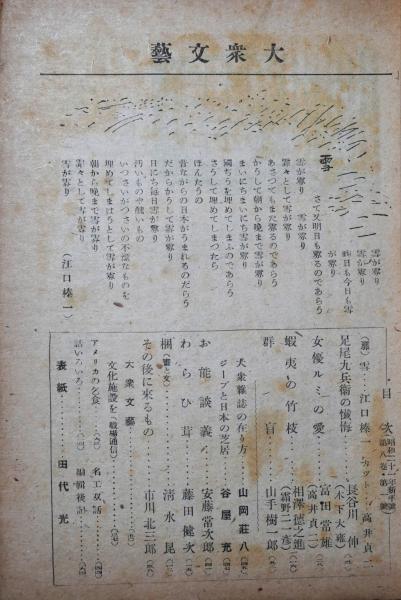 大衆文藝
雪
雪が霏り
雪が霏り
昨日も今日も雪が霏り
さて又明日も霏るのであらう
雪が霏り　雪が霏り
霏々として雪が霏り
あさつてもまた霏るのであらう
かうして朝から晩まで雪が霏り
まいにちまいにち雪が霏り
國ぢうを埋めてしまふのであらう
さうして埋めてしまつたら
ほんたうの
昔ながらの日本がうまれるのだらう
だからかうして雪が霏り
日にち毎日雪が霏り
汚いものや醜いもの
いつさいがつさいの不潔なものを
埋めてしまはうとして雪が霏り
朝から晩まで雪が霏り
霏々として雪が霏り
雪が霏り
（江口榛一）
目次
第八卷・第一號
雪　江口榛一　カツト　高井貞二
足尾九兵衞の懺悔　長谷川伸
（木下大雍）
女優ルミの愛　富田常雄
（高井貞二）
蝦夷の竹枝　相澤徳之進
（霜野二彦）
群盲　山手樹一郎
大衆雜誌の在り方　山岡莊八
ジープと日本の芝居　谷屋充
お能談義　安藤常次郎
わらひ茸　藤田健次
清水昆
その後に來るもの　市川北三郎
大衆文藝
文化施設を（職場通信）
アメリカの夕食　名工双話
話いろいろ　編輯後記
表紙　田代光